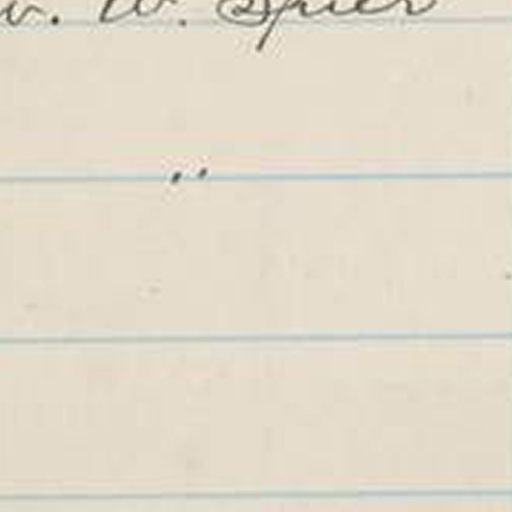 W. Spier
"